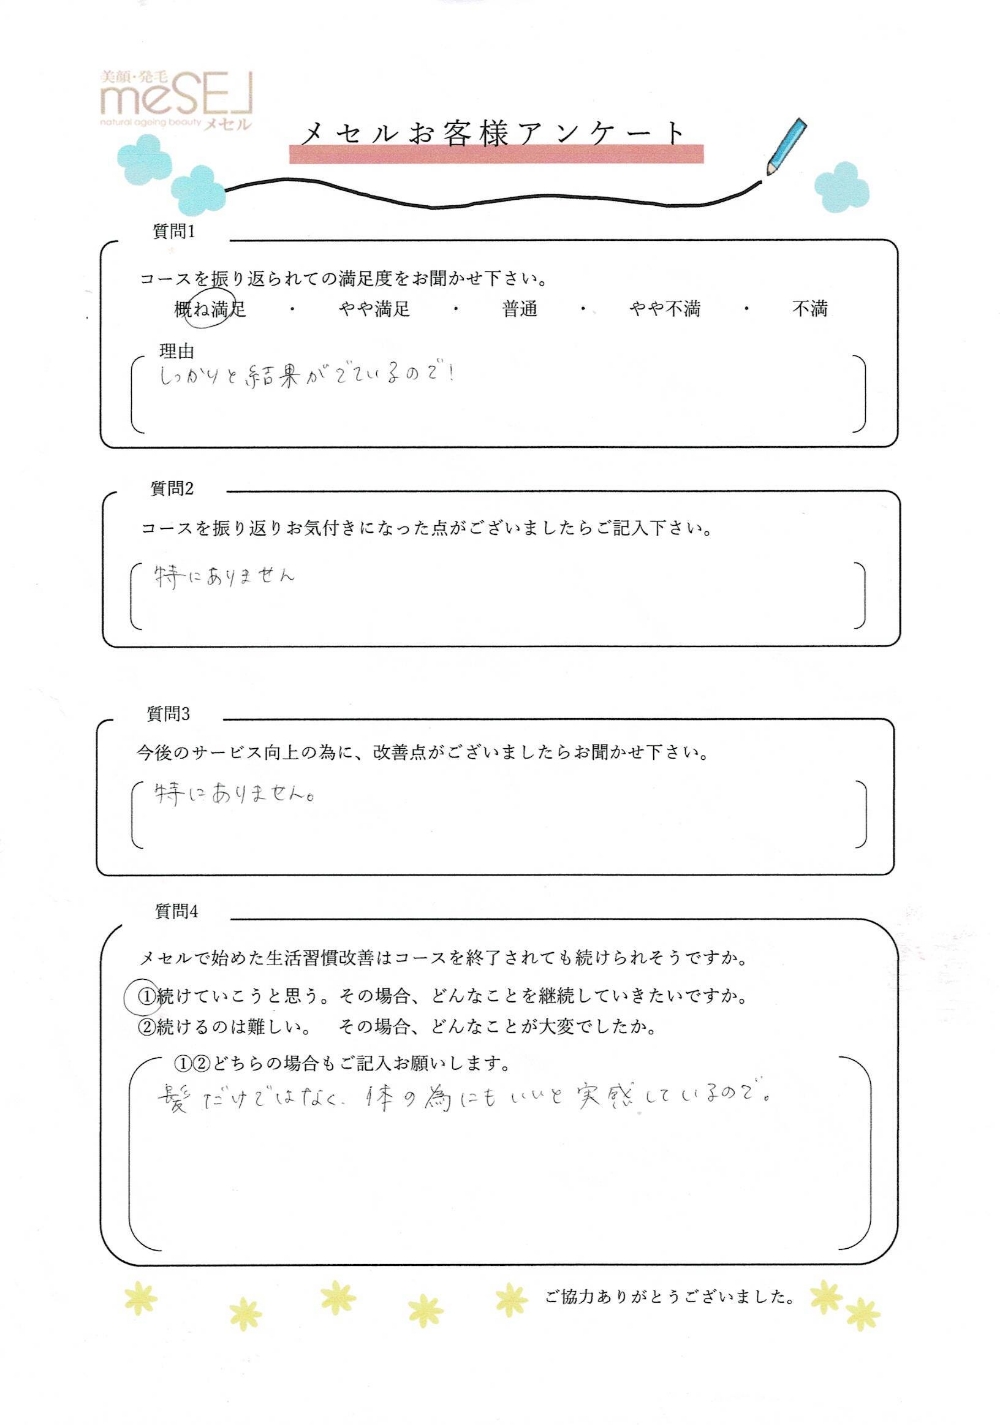 美顔・発毛
meSEL
natural ageing beauty メセル
メセルお客様アンケート
質問1
コースを振り返られての満足度をお聞かせ下さい。
概ね満足 ・ やや満足 ・ 普通 ・ やや不満 ・ 不満
理由
しっかりと結果がでているので!
質問2
コースを振り返りお気付きになった点がございましたらご記入下さい。
特にありません
質問3
今後のサービス向上の為に、改善点がございましたらお聞かせ下さい。
特にありません。
質問4
メセルで始めた生活習慣改善はコースを終了されても続けられそうですか。
①続けていこうと思う。その場合、どんなことを継続していきたいですか。
②続けるのは難しい。 その場合、どんなことが大変でしたか。
①②どちらの場合もご記入お願いします。
髪だけではなく、体の為にもいいと実感しているので。
ご協力ありがとうございました。